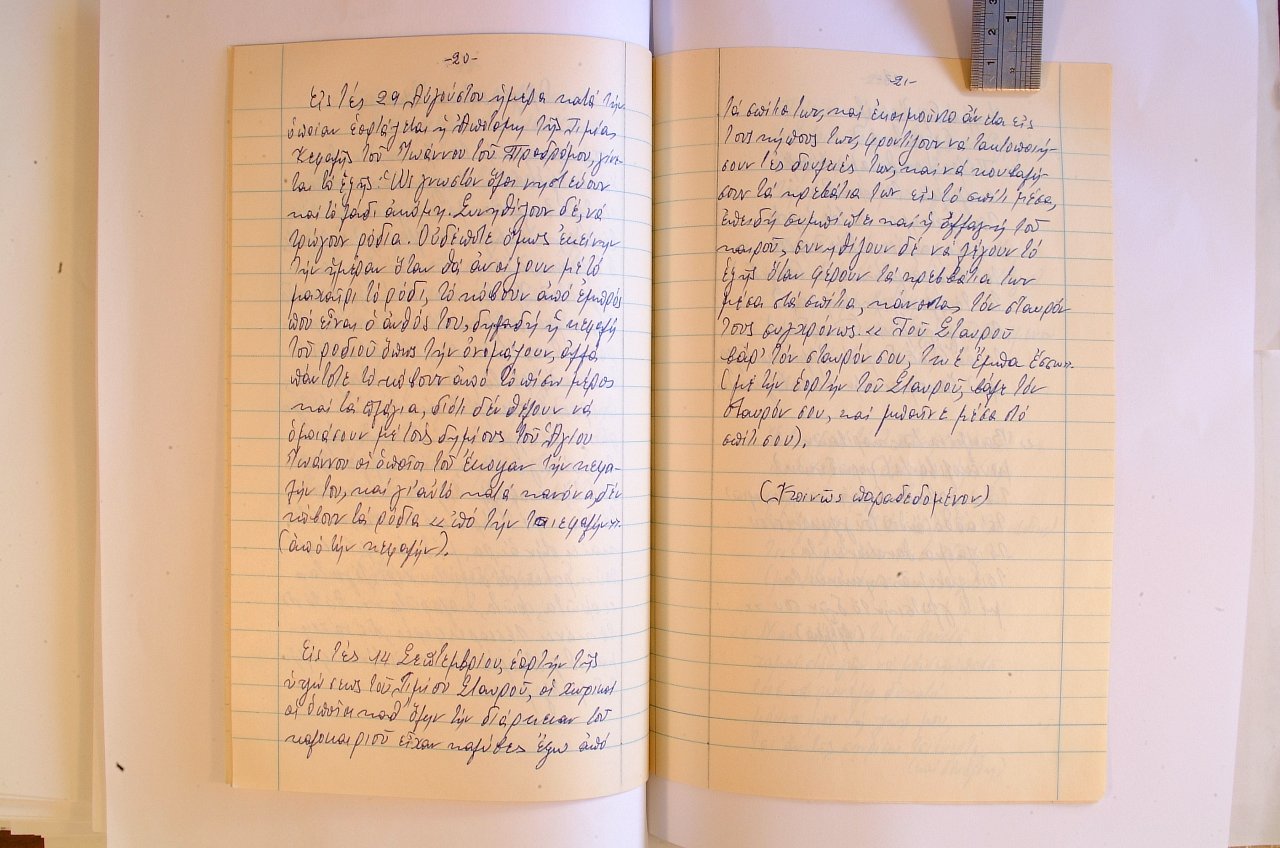 -20-
Εἰς τές 29 Αὐγούστου ἡμέρα κατά τήν
ὁποίαν ἑορτάζεται ἡ Ἀποτομή τῆς Τιμίας
Κεφαλῆς τοῦ Ἰωάννου τοῦ Προδρόμου, γίνε-
ται τό ἑξῆς: Ὡς γνωστόν ὅλοι νηστεύουν
καί τό λάδι ἀκόμη. Συνηθίζουν δέ, νά
τρώγουν ρόδια. Οὐδέποτε ὅμως ἐκείνην
τήν ἡμέραν ὅταν θά ἀνοίξουν μέ τό
μαχαῖρι τό ρόδι, τό κόβουν ἀπό ἐμπρός
πού εἶναι ὁ ἀνθός του, δηλαδή ἡ κεφαλή
τοῦ ροδιοῦ ὅπως τήν ὀνομάζουν, ἀλλά
πάντοτε τό κόβουν ἀπό τό πίσω μέρος
καί τά πλάγια, διότι δέν θέλουν νά
ὁμοιάσουν μέ τούς δημίους τοῦ Ἁγίου
Ἰωάννου οἱ ὁποῖοι τοῦ ἔκοψαν τήν κεφα-
λήν του, καί γι' αὐτό κατά κανόνα, δέν
κόβουν τά ρόδια «ἀπό τήν τσιεφαλήν».
(ἀπό τήν κεφαλήν).
Εἰς τές 14 Σεπτεμβρίου, ἑορτήν τῆς
ὑψώσεως τοῦ Τιμίου Σταυροῦ, οἱ χωρικοί
οἱ ὁποῖοι καθ' ὅλην τήν διάρκειαν τοῦ
καλοκαιριοῦ εἶχαν καλύβες ἔξω ἀπό
-21-
τά σπίτια των, καί ἐκοιμοῦντο ἄνετα εἰς
τούς κήπους των, φροντίζουν νά τακτοποιή-
σουν τές δουλειές των, καί νά κουβαλή-
σουν τά κρεβάτια των εἰς τό σπίτι μέσα,
ἐπειδή συμπίπτει καί ἡ ἀλλαγή τοῦ
καιροῦ, συνηθίζουν δέ νά λέγουν τό
ἑξῆς ὅταν φέρουν τά κρεββάτια των
μέσα στά σπίτια, κάνοντας τόν σταυρόν
τους συγχρόνως «Τοῦ Σταυροῦ
βάρ' τόν σταυρόν σου, τζ' ἔμπα ἔσω».
(μέ τήν ἑορτήν τοῦ Σταυροῦ, βάλε τόν
σταυρόν σου, καί μπαῖνε μέσα στό
σπίτι σου).
(Κοινῶς παραδεδομένον)